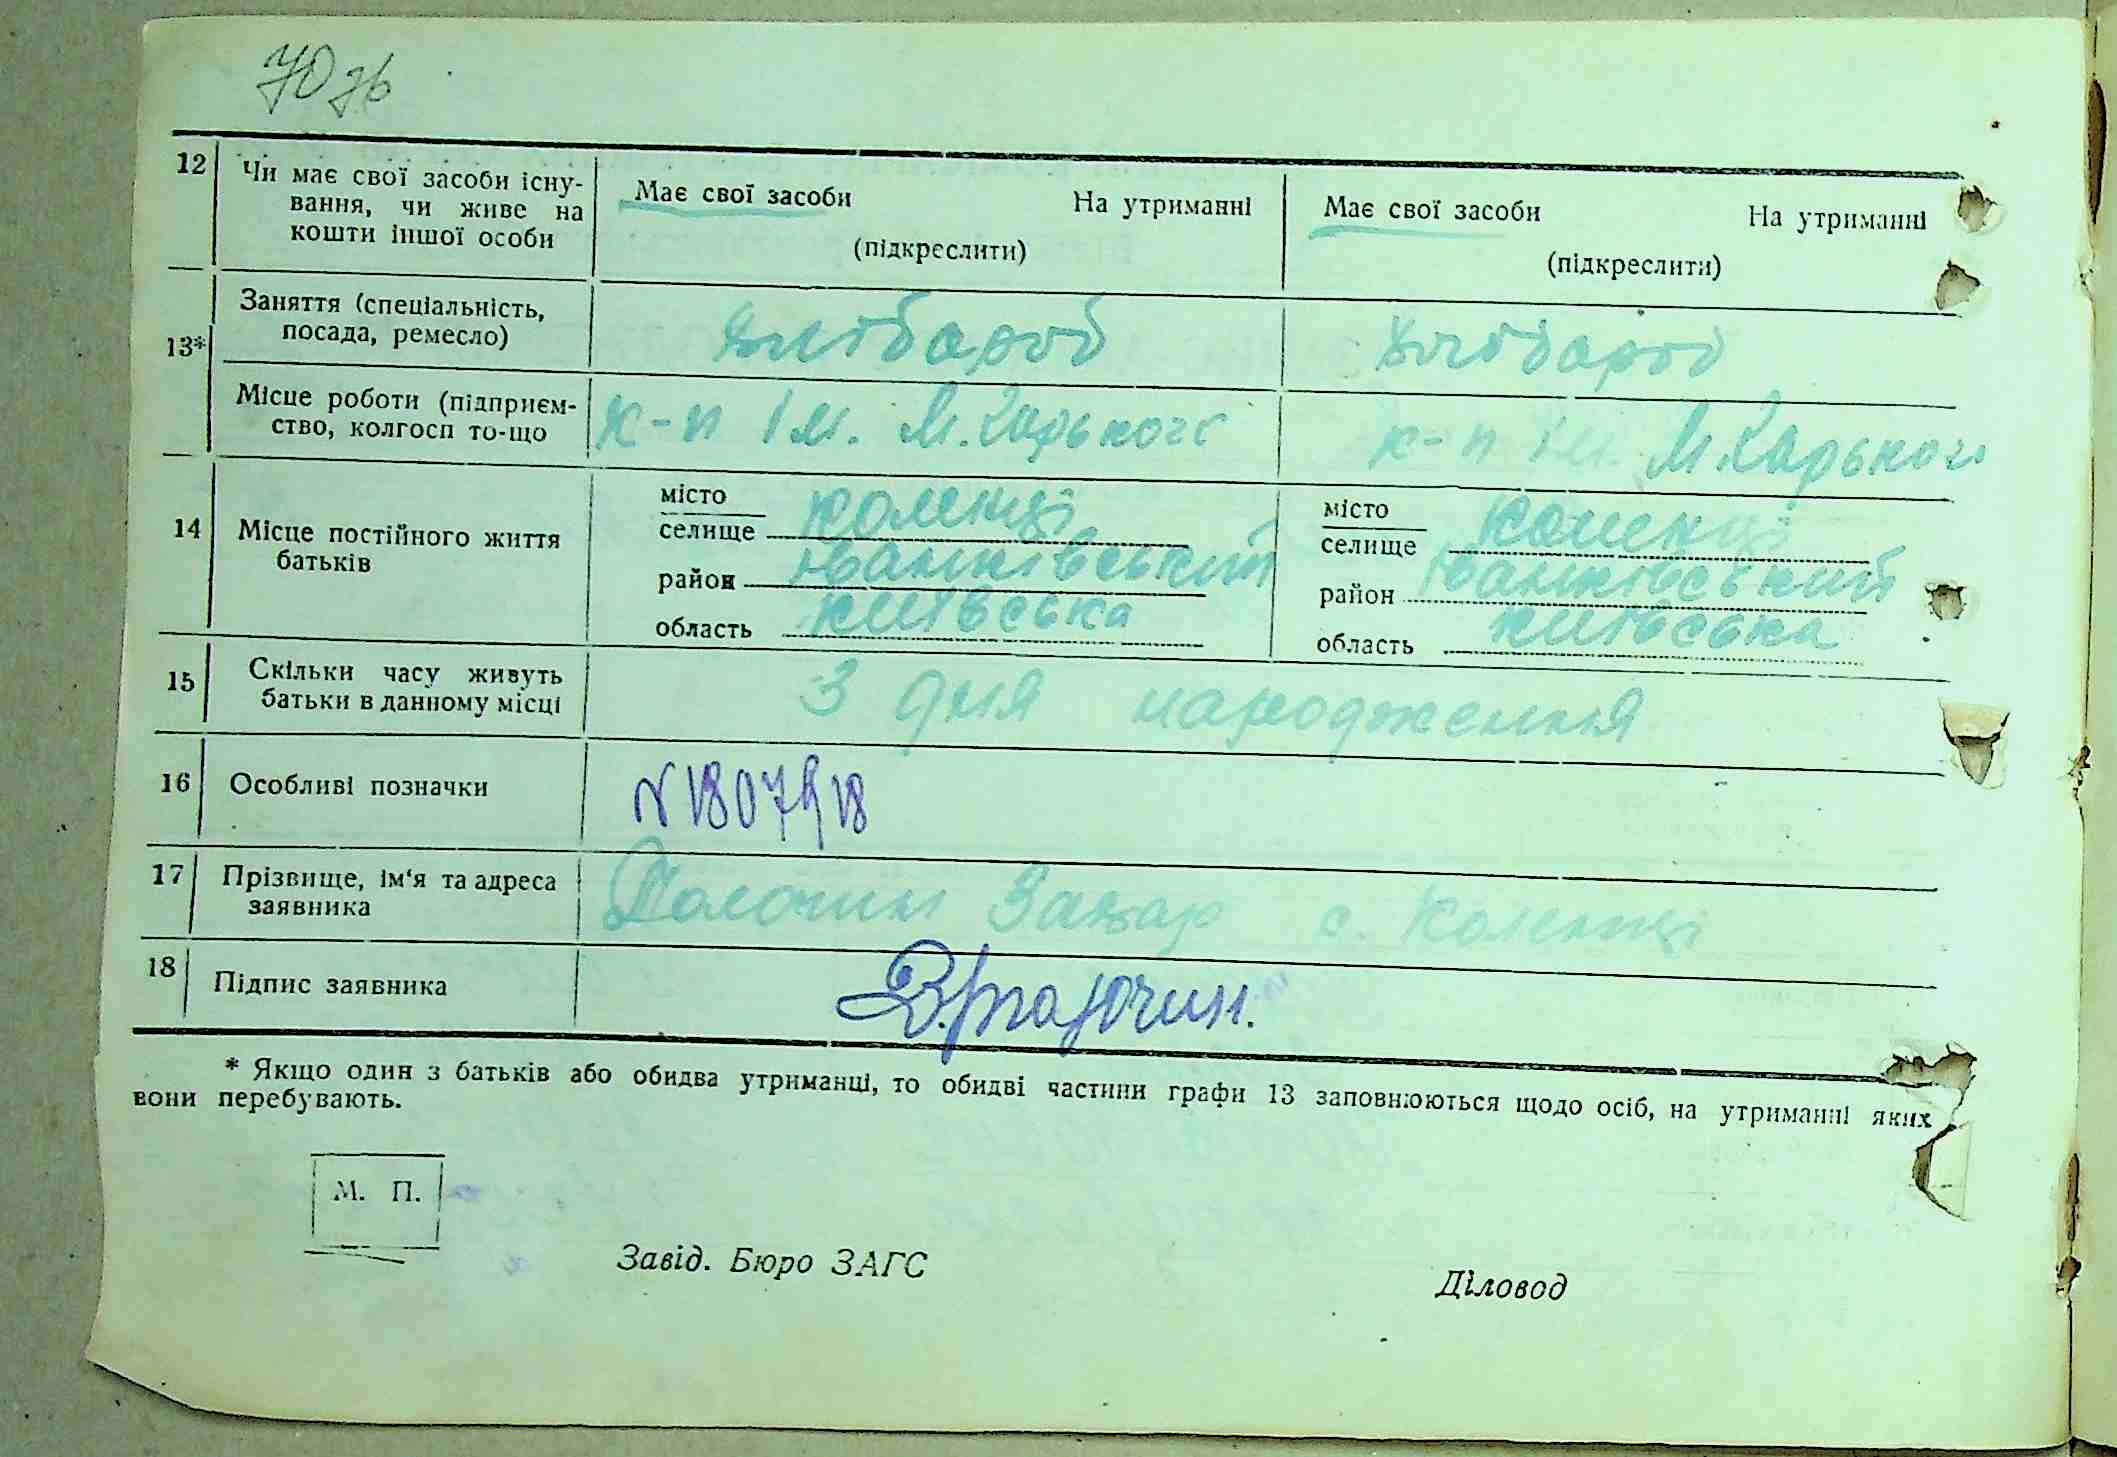 70 зв
12 Чи має свої засоби існу-
вання, чи живе на
кошти іншої особи
Має свої засоби На утриманні
(підкреслити)
Має свої засоби На утриманні
(підкреслити)
13*
Заняття (спеціальність,
посада, ремесло)
Хлібороб Хлібороб
Місце роботи (підприєм-
ство, колгосп то-що
к-п ім. М. Горького
к-п ім. М. Горького
14 Місце постійного життя
батьків
місто
селище Коленці
район Іванківський
область Київська
місто
селище Коленці
район Іванківський
область Київська
15 Скільки часу живуть
батьки в данному місці
З дня народження
16 Особливі позначки
N 1807918
17 Прізвище, ім'я та адреса
заявника
Толочин Захар с. Коленці
18 Підпис заявника
З. Толочин.
* Якщо один з батьків або обидва утриманці, то обидві частини графи 13 заповнюються щодо осіб, на утриманні яких
вони перебувають.
М. П.
Завід. Бюро ЗАГС
Діловод